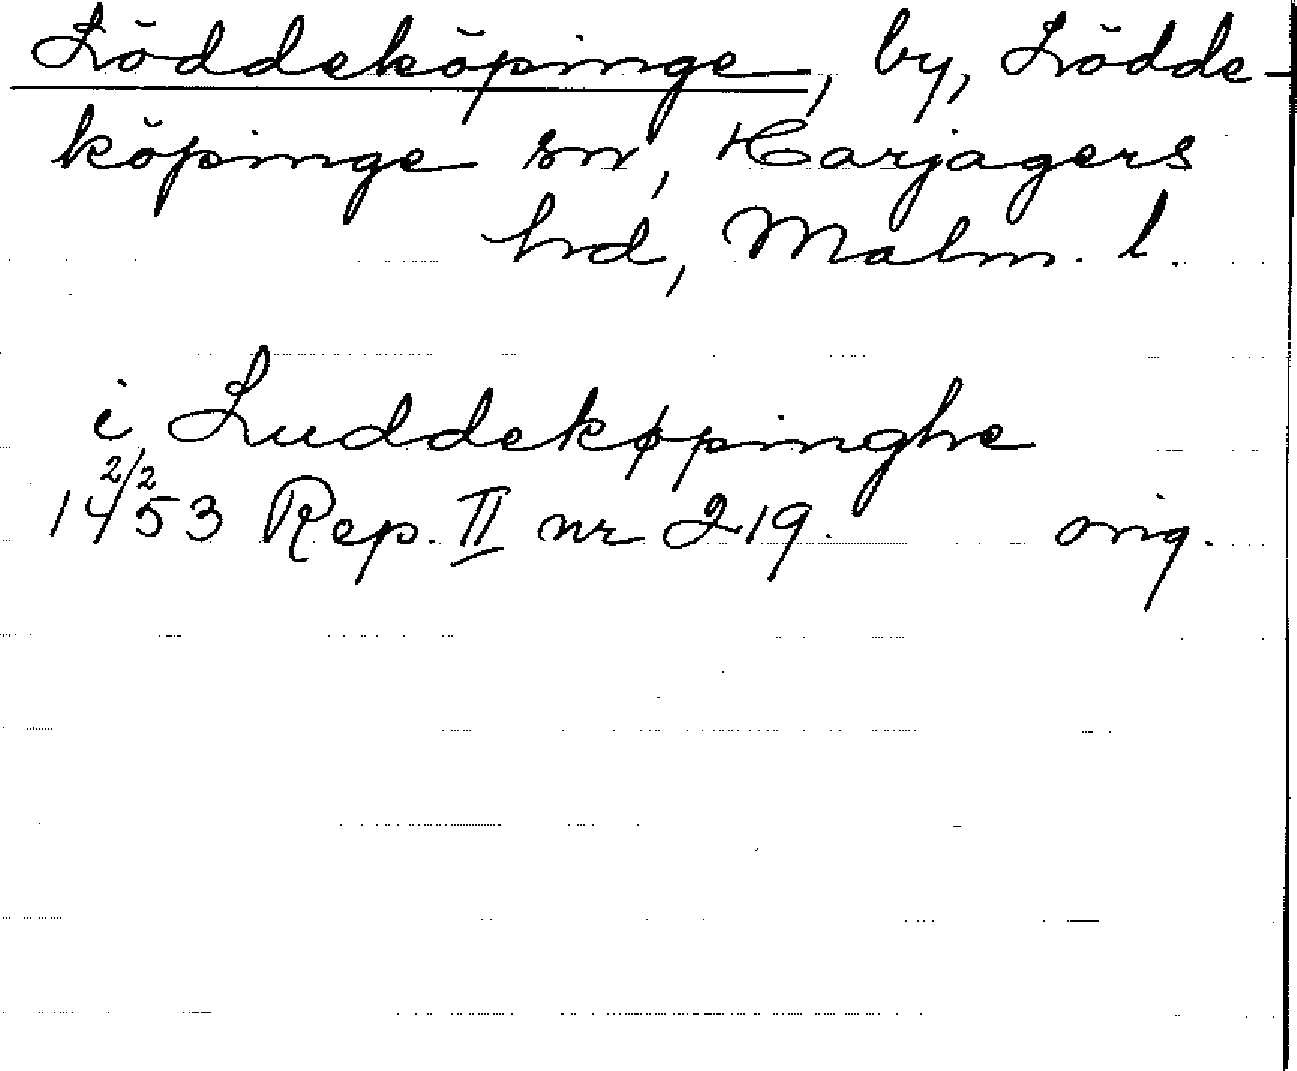 Löddeköpinge, by, Lödde-
köpinge sn, Harjagers
hd, Malm. l.
i Luddekøpinghe
14 2/2 53 Rep. II nr 219. orig.